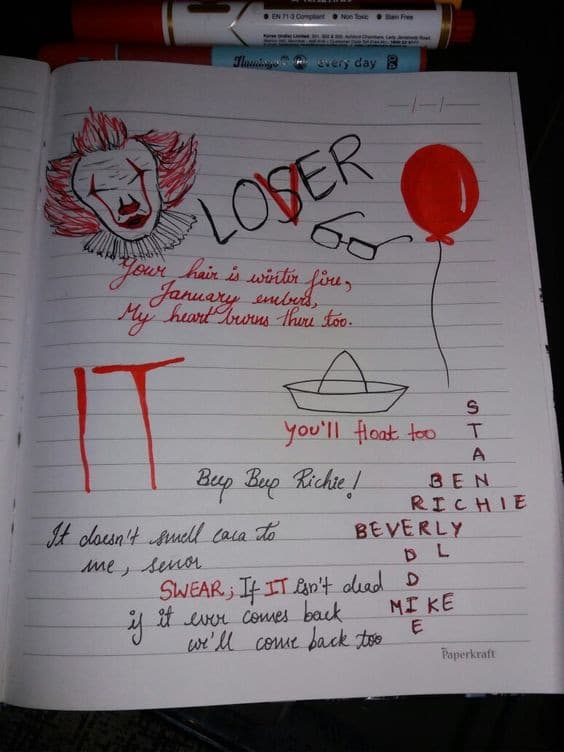 EN 71-3 Compliant Non Toxic Stain Free
Kores (India) Limited
every day
LOSER
V
Your hair is winter fire,
January embers,
My heart burns there too.
IT
you'll float too
Beep Beep Richie!
It doesn't smell caca to
me, senor
SWEAR; If IT isn't dead
if it ever comes back
we'll come back too
S
T
A
BEN
RICHIE
BEVERLY
D L
D
MIKE
E
Paperkraft